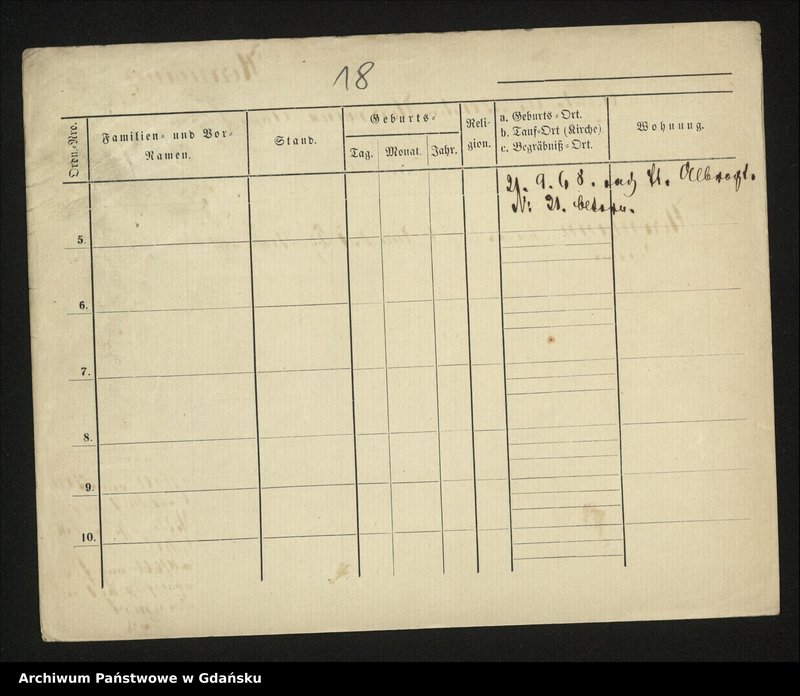 18
Ordn.-Nro.
Familien- und Vor-
Namen.
Stand.
Geburts-
Tag.
Monat.
Jahr.
Reli-
gion.
a. Geburts-Ort.
b. Tauf-Ort (Kirche).
c. Begräbniß-Ort.
Wohnung.
21. 9. 68. nach St. Albrecht.
5.
6.
7.
8.
9.
10.
Archiwum Państwowe w Gdańsku